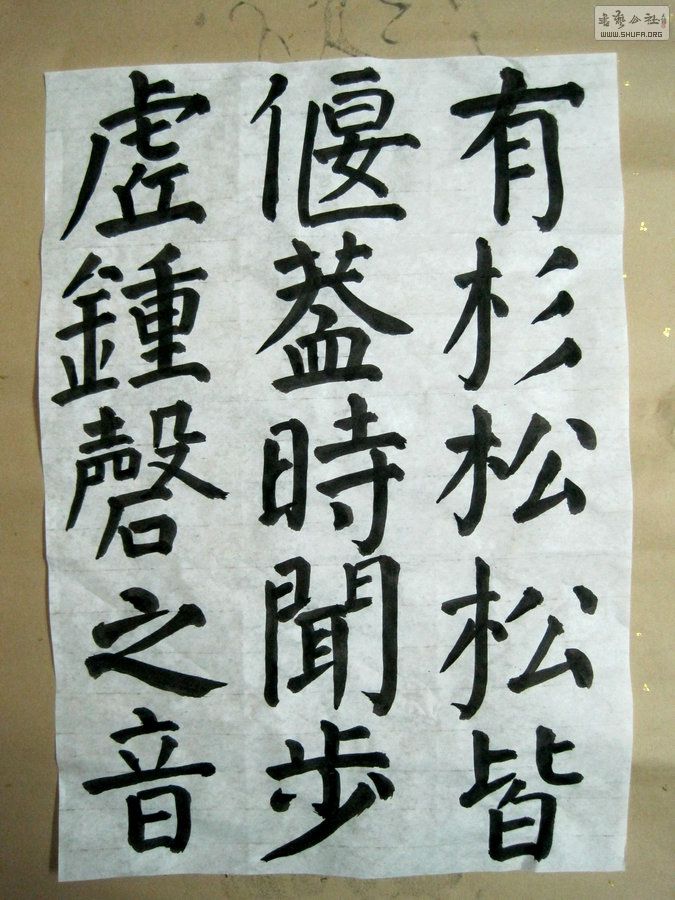 有杉松松皆
偃蓋時聞步
虛鍾磬之音
書藝公社
WWW.SHUFA.ORG